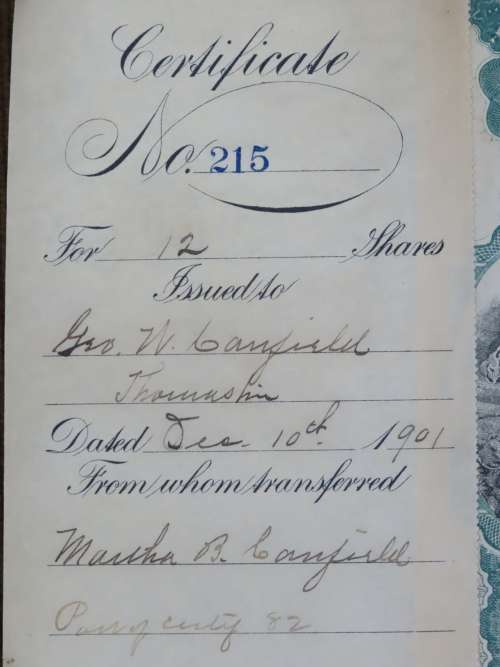 Certificate
No. 215
For 12 Shares
Issued to
Geo. W. Canfield
Thomaston
Dated Dec. 10th. 1901
From whom transferred
Martha B. Canfield
Part of certf 82